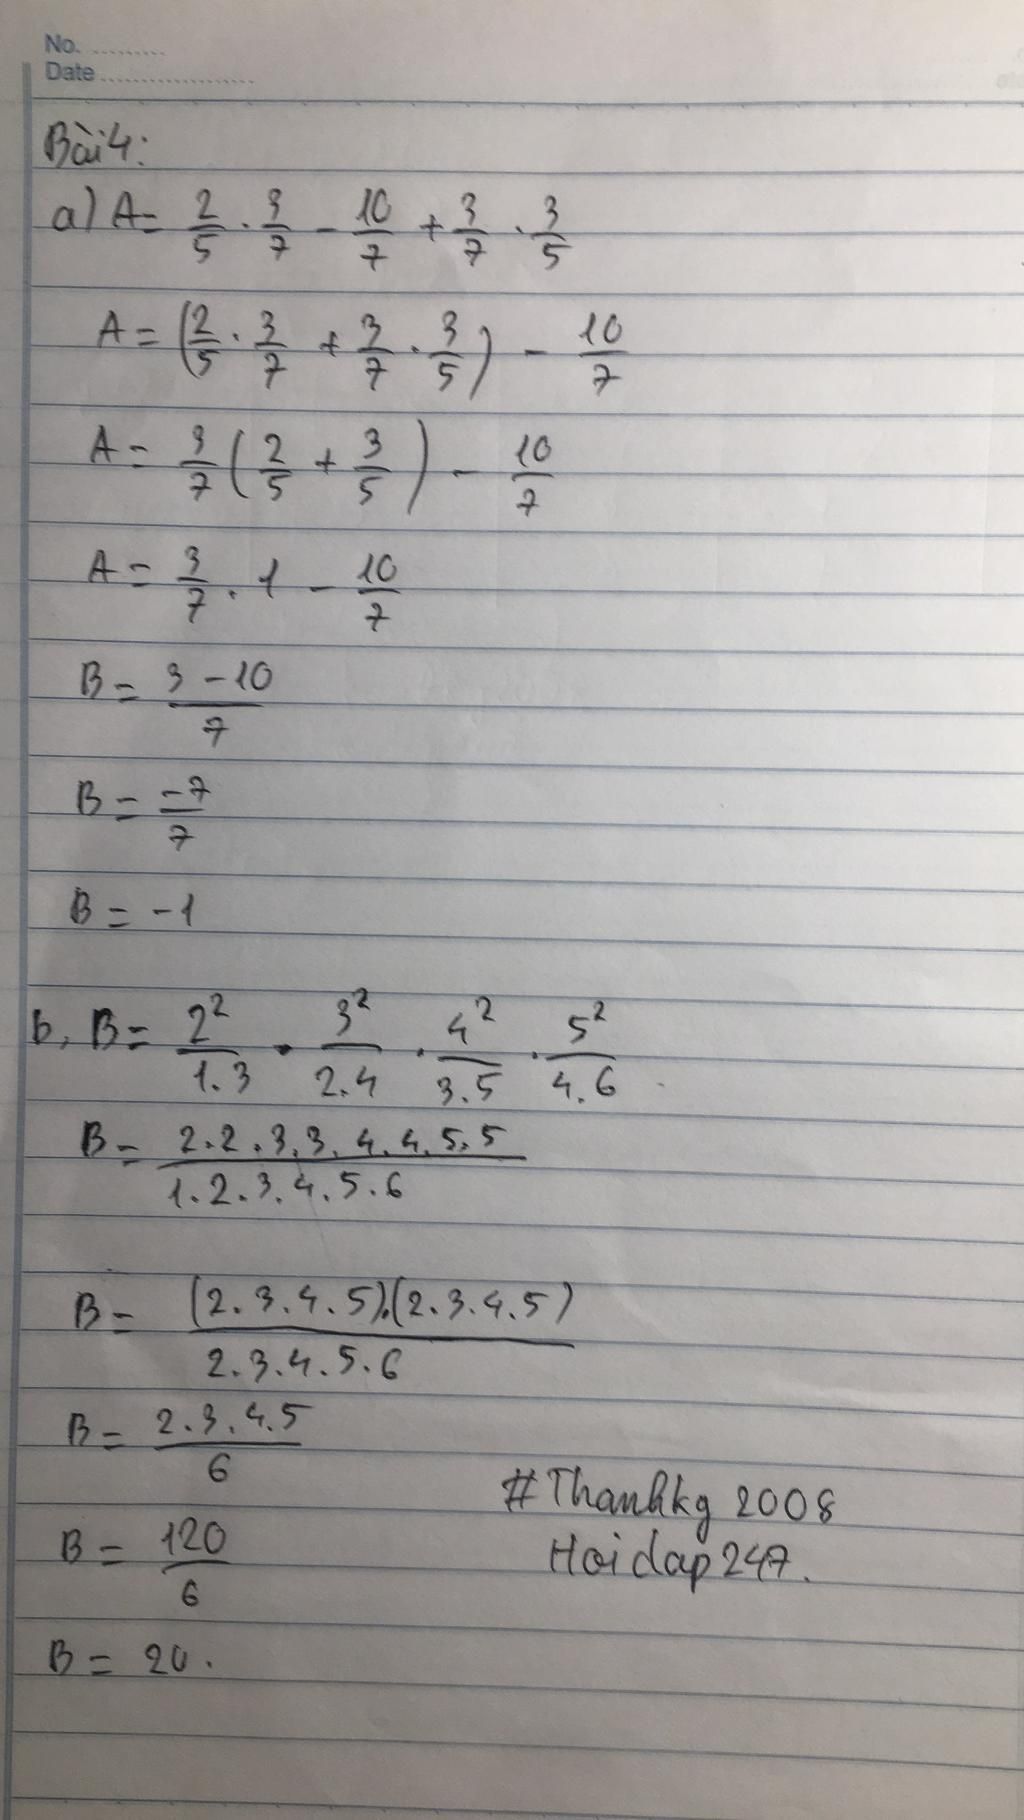 No. ..........
Date ...................
Bài 4:
a) A = 2/5 . 3/7 - 10/7 + 3/7 . 3/5
A = (2/5 . 3/7 + 3/7 . 3/5) - 10/7
A = 3/7 (2/5 + 3/5) - 10/7
A = 3/7 . 1 - 10/7
B = 3 - 10/7
B = -7/7
B = -1
b, B = 2²/1.3 . 3²/2.4 . 4²/3.5 . 5²/4.6
B = 2.2.3.3.4.4.5.5/1.2.3.4.5.6
B = (2.3.4.5).(2.3.4.5)/2.3.4.5.6
B = 2.3.4.5/6
B = 120/6
B = 20.
#Thanhkg 2008
Hoidap247.